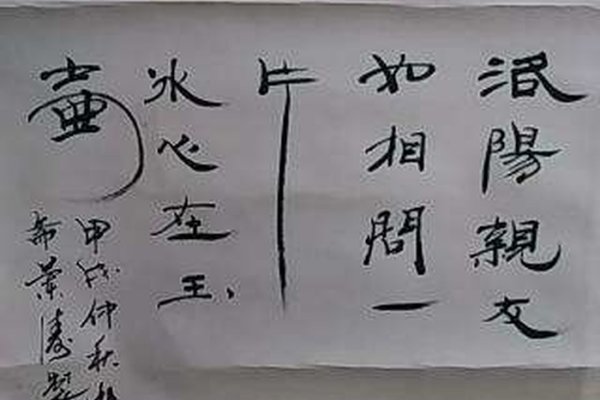 洛陽親友
如相問一
片
冰心在玉
壺
甲戌仲秋